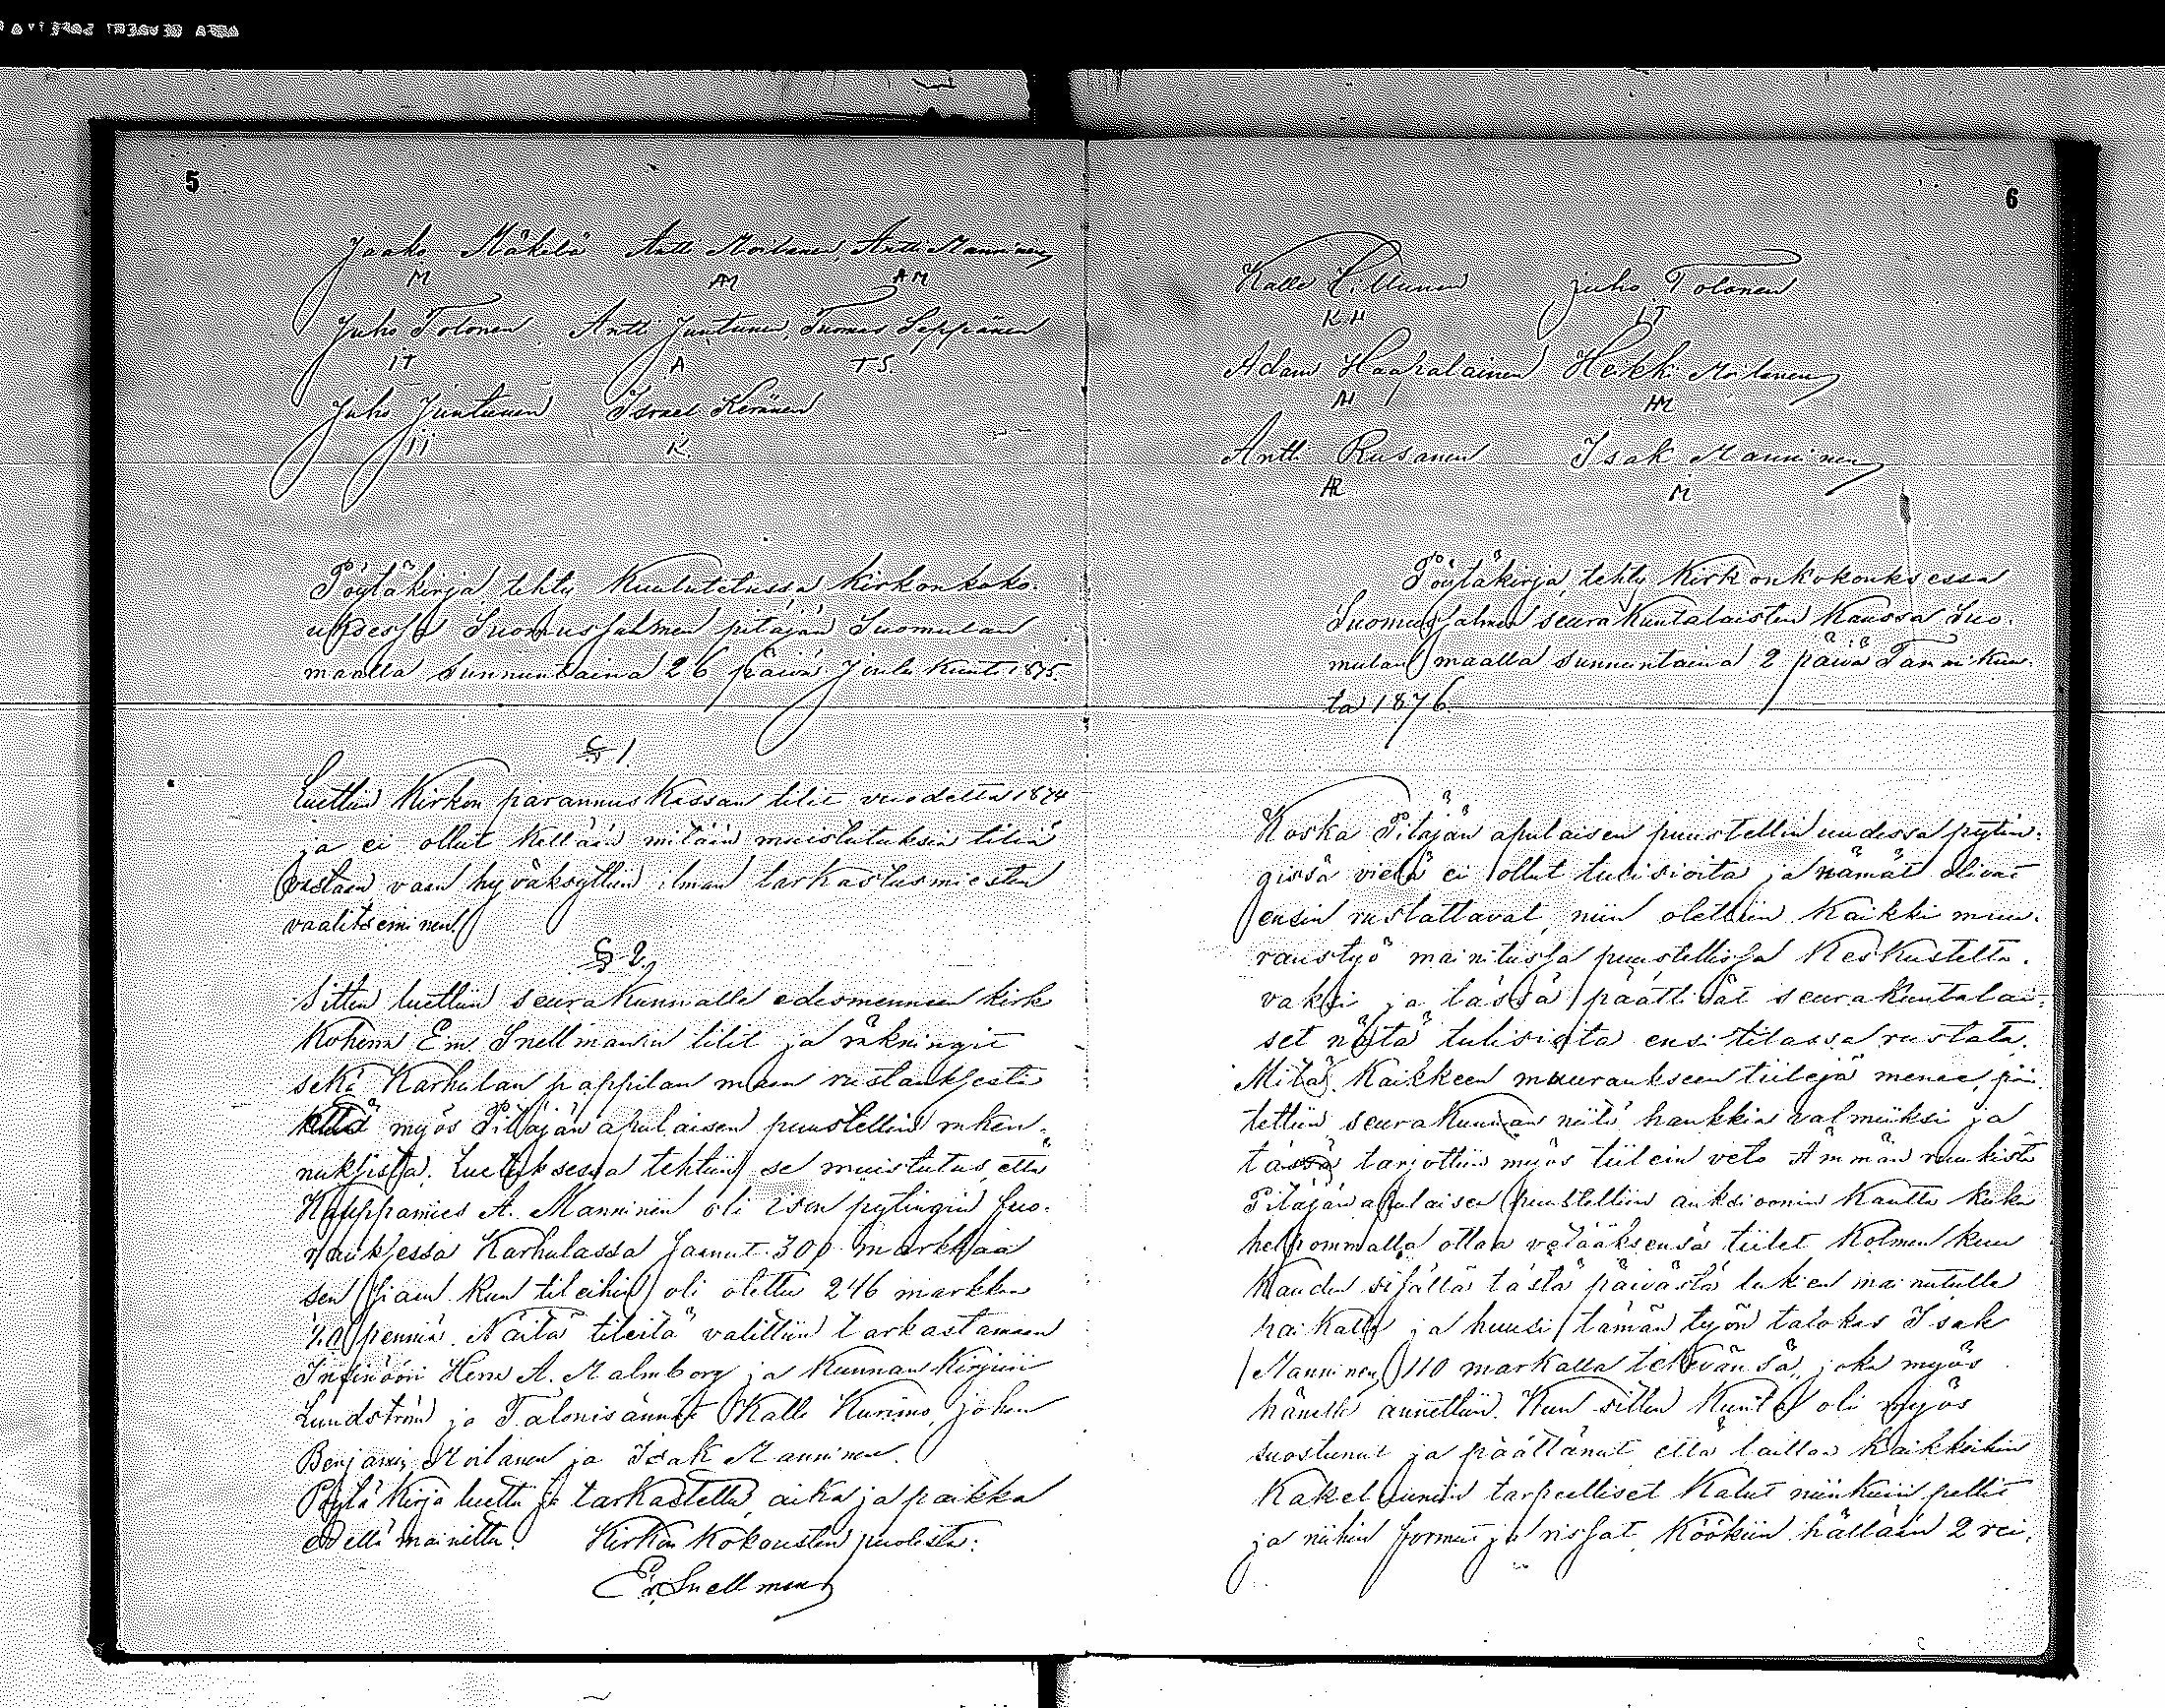 5
Jaako Mäkelä Antti Moilanen, Antti Manninen
M AM AM
Juho Tolonen Antti Juntunen, Tuomas Seppänen
IT A TS.
Juho Juntunen Israel Keränen
II K.
Pöytäkirja, tehty Kuulutetussa kirkonkoko-
uksessa Suomussalmen pitäjän Suomulan
maalla Sunnuntaina 26 päivä Joulu Kuuta 1875.
§ 1.
Luettiin Kirkon parannus Kassan tilit vuodelta 1874
ja ei ollut Kellään mitään muistutuksia tiliä
vastaan vaan hyväksyttiin ilman tarkastusmiesten
vaalitseminen.
§ 2.
Sitten luettiin seurakunnalle edesmennen kirk
Koherra Em. Snellmanin tilit ja räkningit
sekä Karhulan pappilan maan rustauksesta
että myös Pitäjän apulaisen puustellin raken-
nuksista. Luetuksessa tehtiin se muistutus, että
Kauppamies A. Manninen oli ison pytingin
Karhulassa saanut 300 markkaa
sen siaan kun tileihin oli otettu 246 markkaa
penniä. Näitä tileitä valittiin tarkastamaan
Insinööri Herra A. Malmborg ja Kunnan Kirjuri
Lundström ja Talonisännät Kalle Kurimo, johan
Benjamin Moilanen ja Isak Manninen.
Pöytä Kirja luettu ja tarkastettu, aika ja paikka
edellä mainittu. Kirkon Kokousten puolesta:
Er. Snellman
6
Kalle Juho Tolonen
KH IT
Adam Haapalainen Heikki Moilanen
AH HM
Antti Rusanen Isak Manninen
AR M
Pöytäkirja, tehty Kirkonkokouksessa
Suomussalmen seurakuntalaisten Kanssa Suo-
mulan maalla sunnuntaina 2 päivä Tammikuu-
ta 1876.
Koska Pitäjän apulaisen puustellin uudessa pytin-
gissä vielä ei ollut tulisioita ja nämät olivat
ensin rustattavat, niin otettiin Kaikki muu-
raustyö mainitussa puustellissa Keskustelta-
vaksi ja tässä päättivät seurakuntalai-
set näitä tulisioita ensi tilassa rustata.
Mitä Kaikkeen muuraukseen tiilejä menee, pää
tettiin seurakunnan niitä hankkia valmiiksi ja
tässä tarjottiin myös tiilein veto Ämmän ruukista
Pitäjän apulaisen puustelliin auktsioonin Kautta kuka
helpommalla ottaa vetääksensä tiilet Kolmen kuu
Kauden sisällä tästä päivästä lukien mainitulle
paikalle ja huusi tämän työn talokas Isak
Manninen 110 markalla tekevänsä, joka myös
hänelle annettiin. Kun sitten Kunta oli myös
suostunut ja päättänyt että laittaa kaikkihin
Kakeluuniin tarpeelliset Kalut niinkuin pellit
ja niihin formut ja rissat, Köökiin hällään 2 rei-